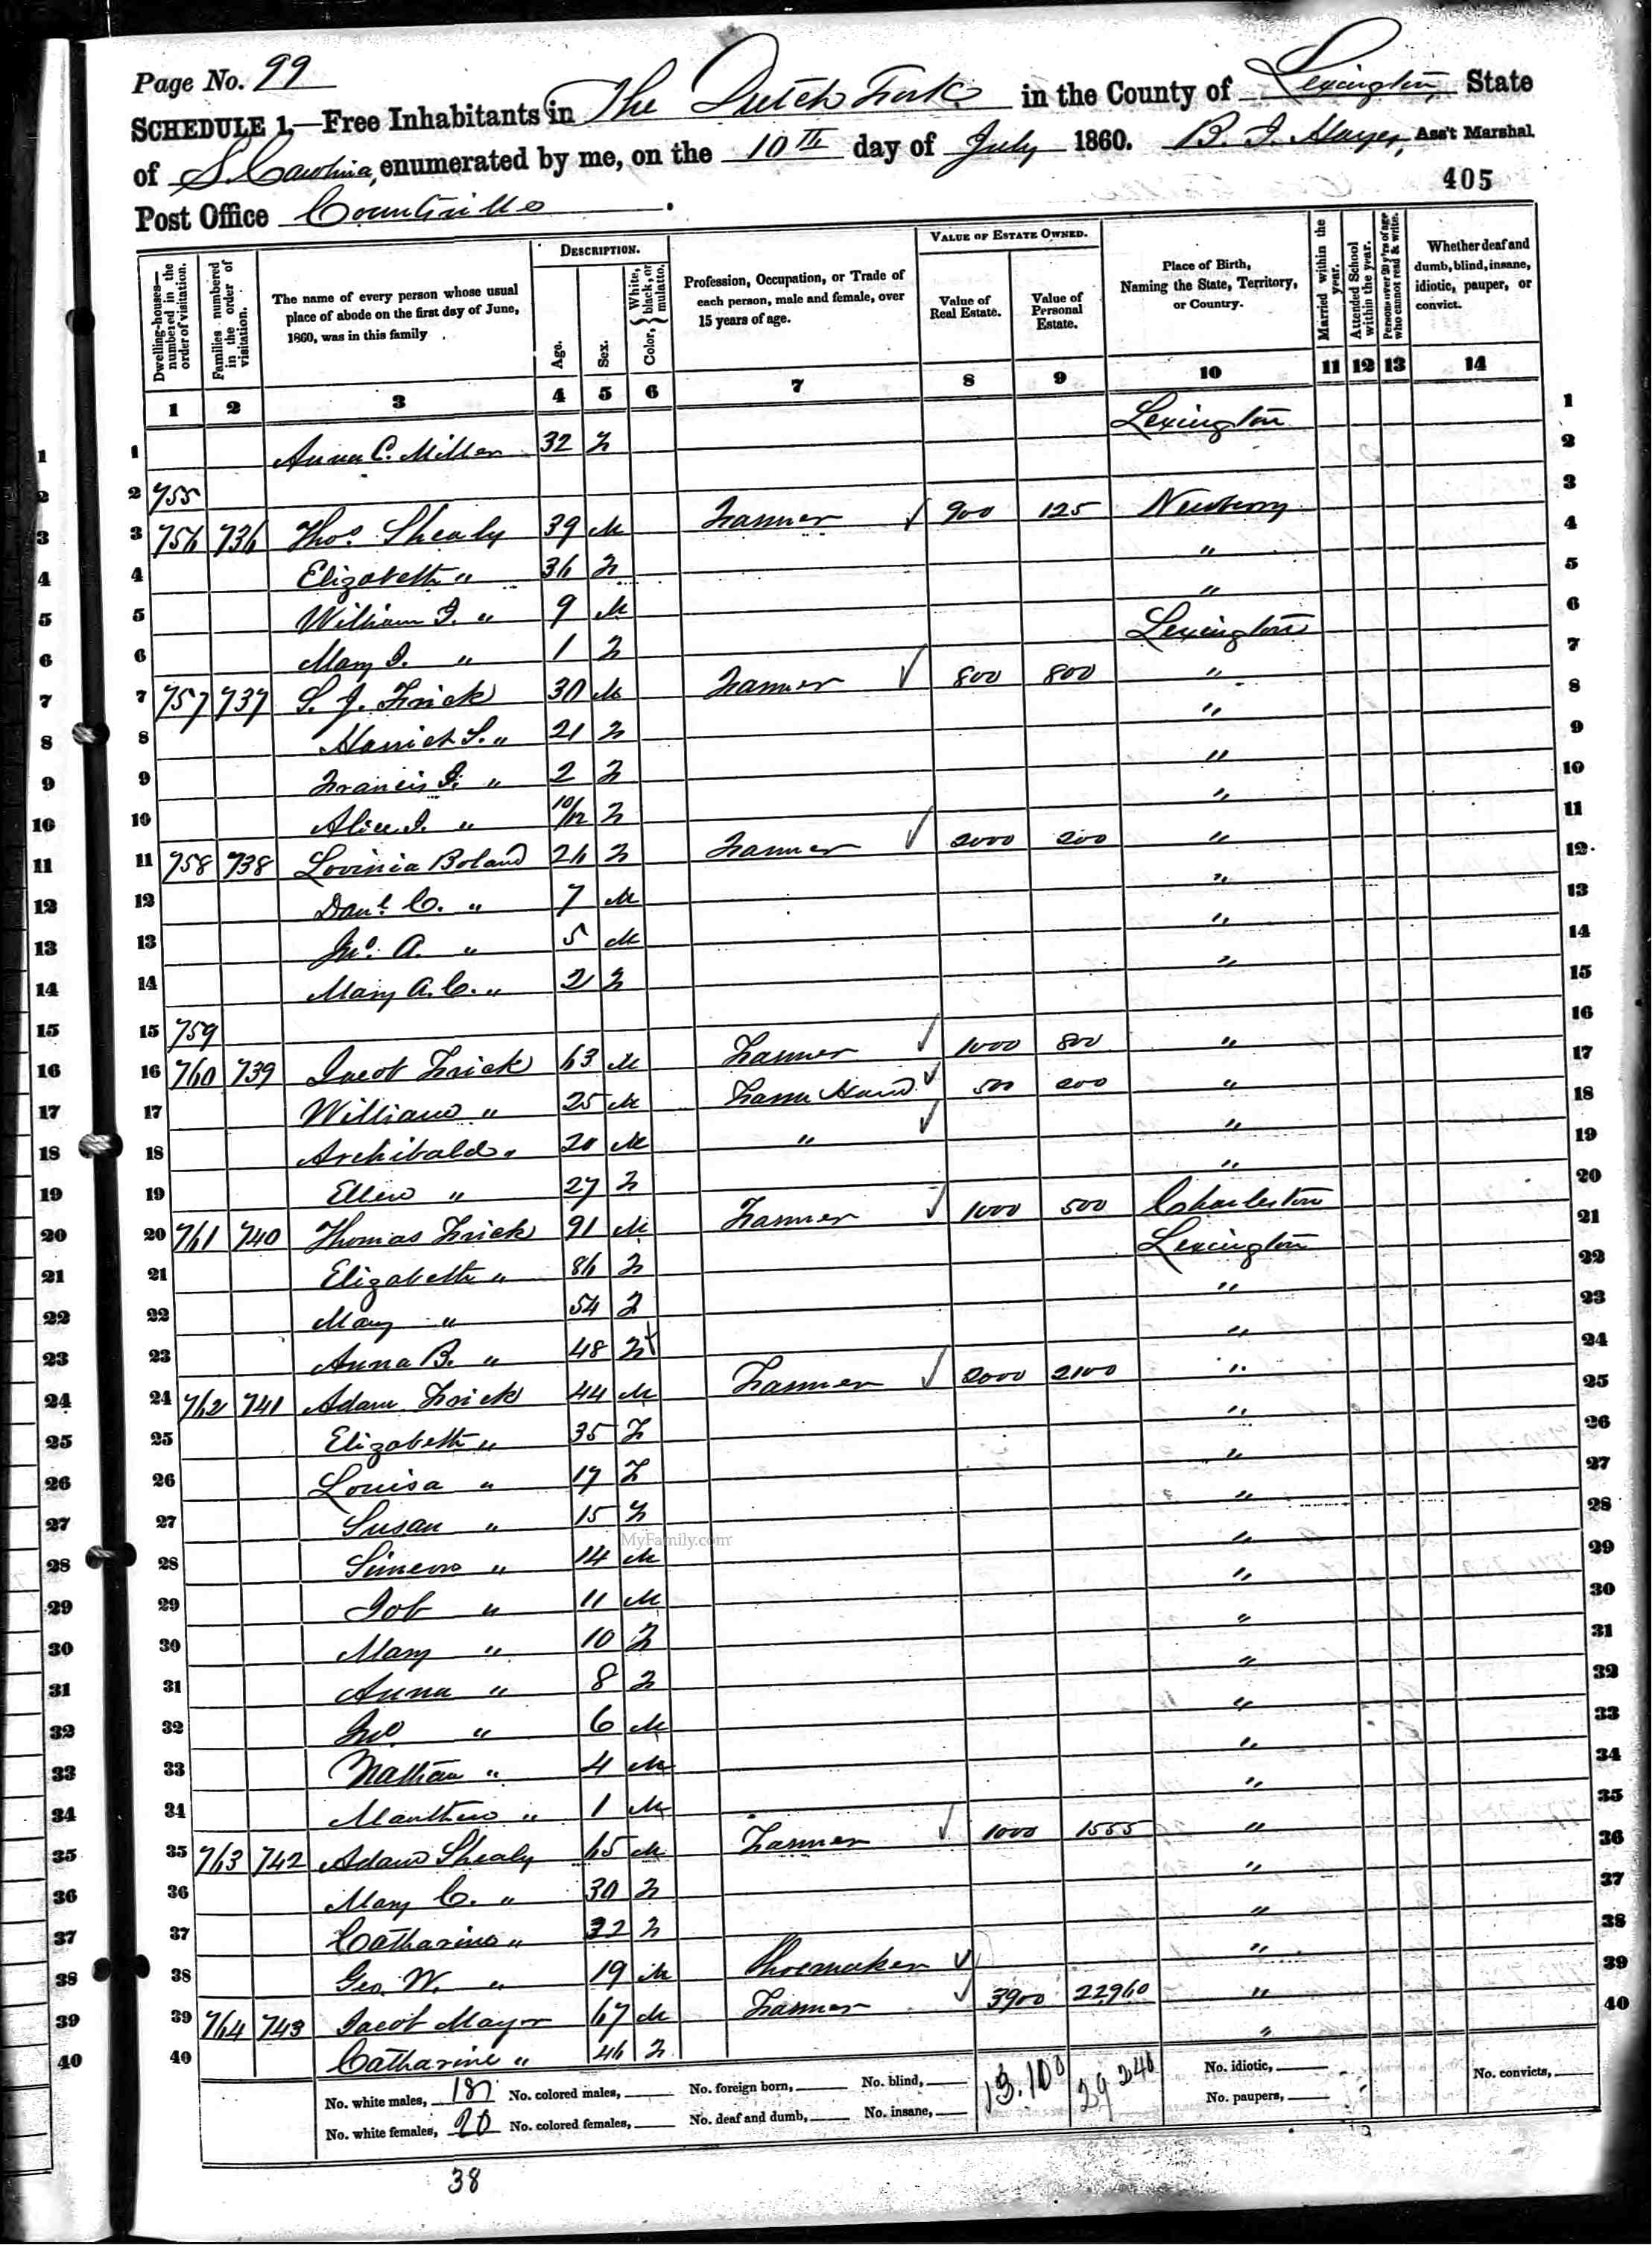 Page No. 99
SCHEDULE 1.—Free Inhabitants in The Dutch Fork in the County of Lexington State
of S. Carolina, enumerated by me, on the 10TH day of July 1860. Ass't Marshal.
405
Post Office
Dwelling-houses—numbered in the order of visitation.
Families numbered in the order of visitation.
The name of every person whose usual place of abode on the first day of June, 1860, was in this family.
DESCRIPTION.
Age.
Sex.
Color, White, black, or mulatto.
Profession, Occupation, or Trade of each person, male and female, over 15 years of age.
VALUE OF ESTATE OWNED.
Value of Real Estate.
Value of Personal Estate.
Place of Birth, Naming the State, Territory, or Country.
Married within the year.
Attended School within the year.
Persons over 20 y'rs of age who cannot read & write.
Whether deaf and dumb, blind, insane, idiotic, pauper, or convict.
1 2 3 4 5 6 7 8 9 10 11 12 13 14
1 Anna C. Miller 32 F Lexington 1
2 755 2
3 756 736 Thos. Shealy 39 M Farmer 900 125 Newberry 3
4 Elizabeth " 36 F " 4
5 William " 9 M " 5
6 Mary " 1 F Lexington 6
7 757 737 S. J. Frick 30 M Farmer 800 800 " 7
8 Harriet S. " 21 F " 8
9 Francis " 2 F " 9
10 Alice " 10/12 F " 10
11 758 738 Lovinia Boland 26 F Farmer 2000 200 " 11
12 Danl. C. " 7 M " 12
13 Jno. A. " 5 M " 13
14 Mary A. C. " 2 F " 14
15 759 15
16 760 739 Jacob Frick 63 M Farmer 1000 800 " 16
17 William " 25 M Farm Hand 500 200 " 17
18 Archibald " 20 M " " 18
19 Ellen " 27 F " 19
20 761 740 Thomas Frick 91 M Farmer 1000 500 Charleston 20
21 Elizabeth " 86 F Lexington 21
22 Mary " 54 F " 22
23 Anna B. " 48 F " 23
24 762 741 Adam Frick 44 M Farmer 2000 2100 " 24
25 Elizabeth " 35 F " 25
26 Louisa " 17 F " 26
27 Susan " 15 F " 27
28 Simeon " 14 M " 28
29 Job " 11 M " 29
30 Mary " 10 F " 30
31 Anna " 8 F " 31
32 Jno " 6 M " 32
33 Nathan " 4 M " 33
34 " 1 M " 34
35 763 742 Adam Shealy 65 M Farmer 1000 1555 " 35
36 Mary C. " 30 F " 36
37 Catharine " F " 37
38 Geo. W. " 19 M Shoemaker " 38
39 764 743 Jacob Mayer 67 M Farmer 3900 22960 " 39
40 Catharine " 46 F " 40
MyFamily.com
No. white males, 18 No. colored males, No. foreign born, No. blind, 13.100 29 240 No. idiotic, No. convicts,
No. white females, 20 No. colored females, No. deaf and dumb, No. insane, No. paupers,
38